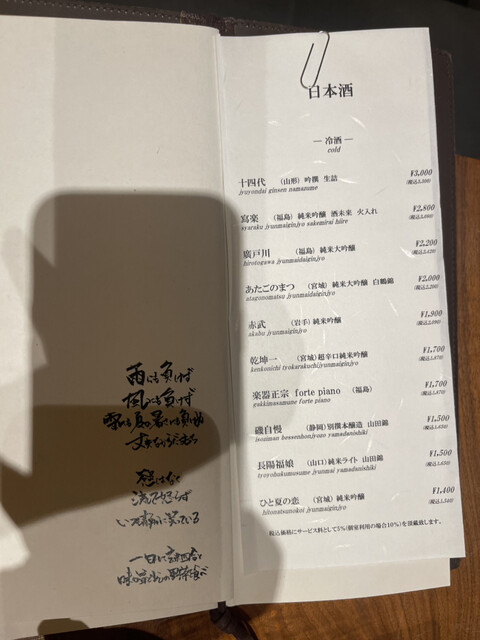 雨にも負けず
風にも負けず
雪にも夏の暑さにも負けぬ
丈夫なからだをもち
慾はなく
決して怒らず
いつも静かに笑っている
一日に玄米四合と
味噌と少しの野菜を食べ
日本酒
― 冷酒 ―
cold
十四代 (山形) 吟撰 生詰 ¥3,000
jyuyondai ginsen namazume (税込3,300)
寫楽 (福島) 純米吟醸 酒未来 火入れ ¥2,800
syaraku jyunmaiginjyo sakemirai hiire (税込3,080)
廣戸川 (福島) 純米大吟醸 ¥2,200
hirotogawa jyunmaidaiginjyo (税込2,420)
あたごのまつ (宮城) 純米大吟醸 白鶴錦 ¥2,000
atagonomatsu jyunmaidaiginjyo (税込2,200)
赤武 (岩手) 純米吟醸 ¥1,900
akabu jyunmaiginjyo (税込2,090)
乾坤一 (宮城) 超辛口純米吟醸 ¥1,700
kenkonichi tyokarakuchijyunmaiginjyo (税込1,870)
楽器正宗 forte piano (福島) ¥1,700
gakkimasamune forte piano (税込1,870)
磯自慢 (静岡) 別撰本醸造 山田錦 ¥1,500
isojiman bessenhonjyozo yamadanishiki (税込1,650)
長陽福娘 (山口) 純米ライト 山田錦 ¥1,500
tyoyohukumusume jyunmai yamadanishiki (税込1,650)
ひと夏の恋 (宮城) 純米吟醸 ¥1,400
hitonatsunokoi jyunmaiginjyo (税込1,540)
税込価格にサービス料として5%(個室利用の場合10%)を頂戴致します。